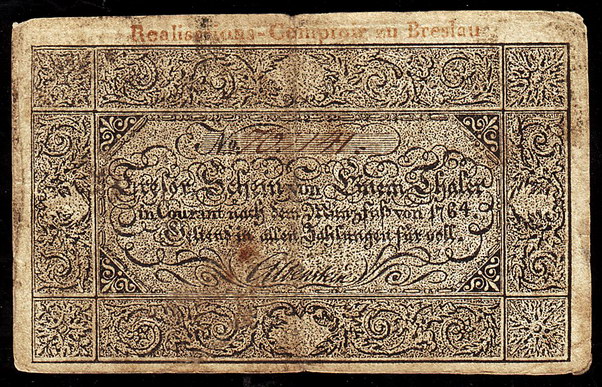 Realisations-Comptoir zu Breslau
No.
Tresor-Schein von Einem Thaler
in Courant nach dem Münzfuß von 1764
Geltend in allen Zahlungen für voll.